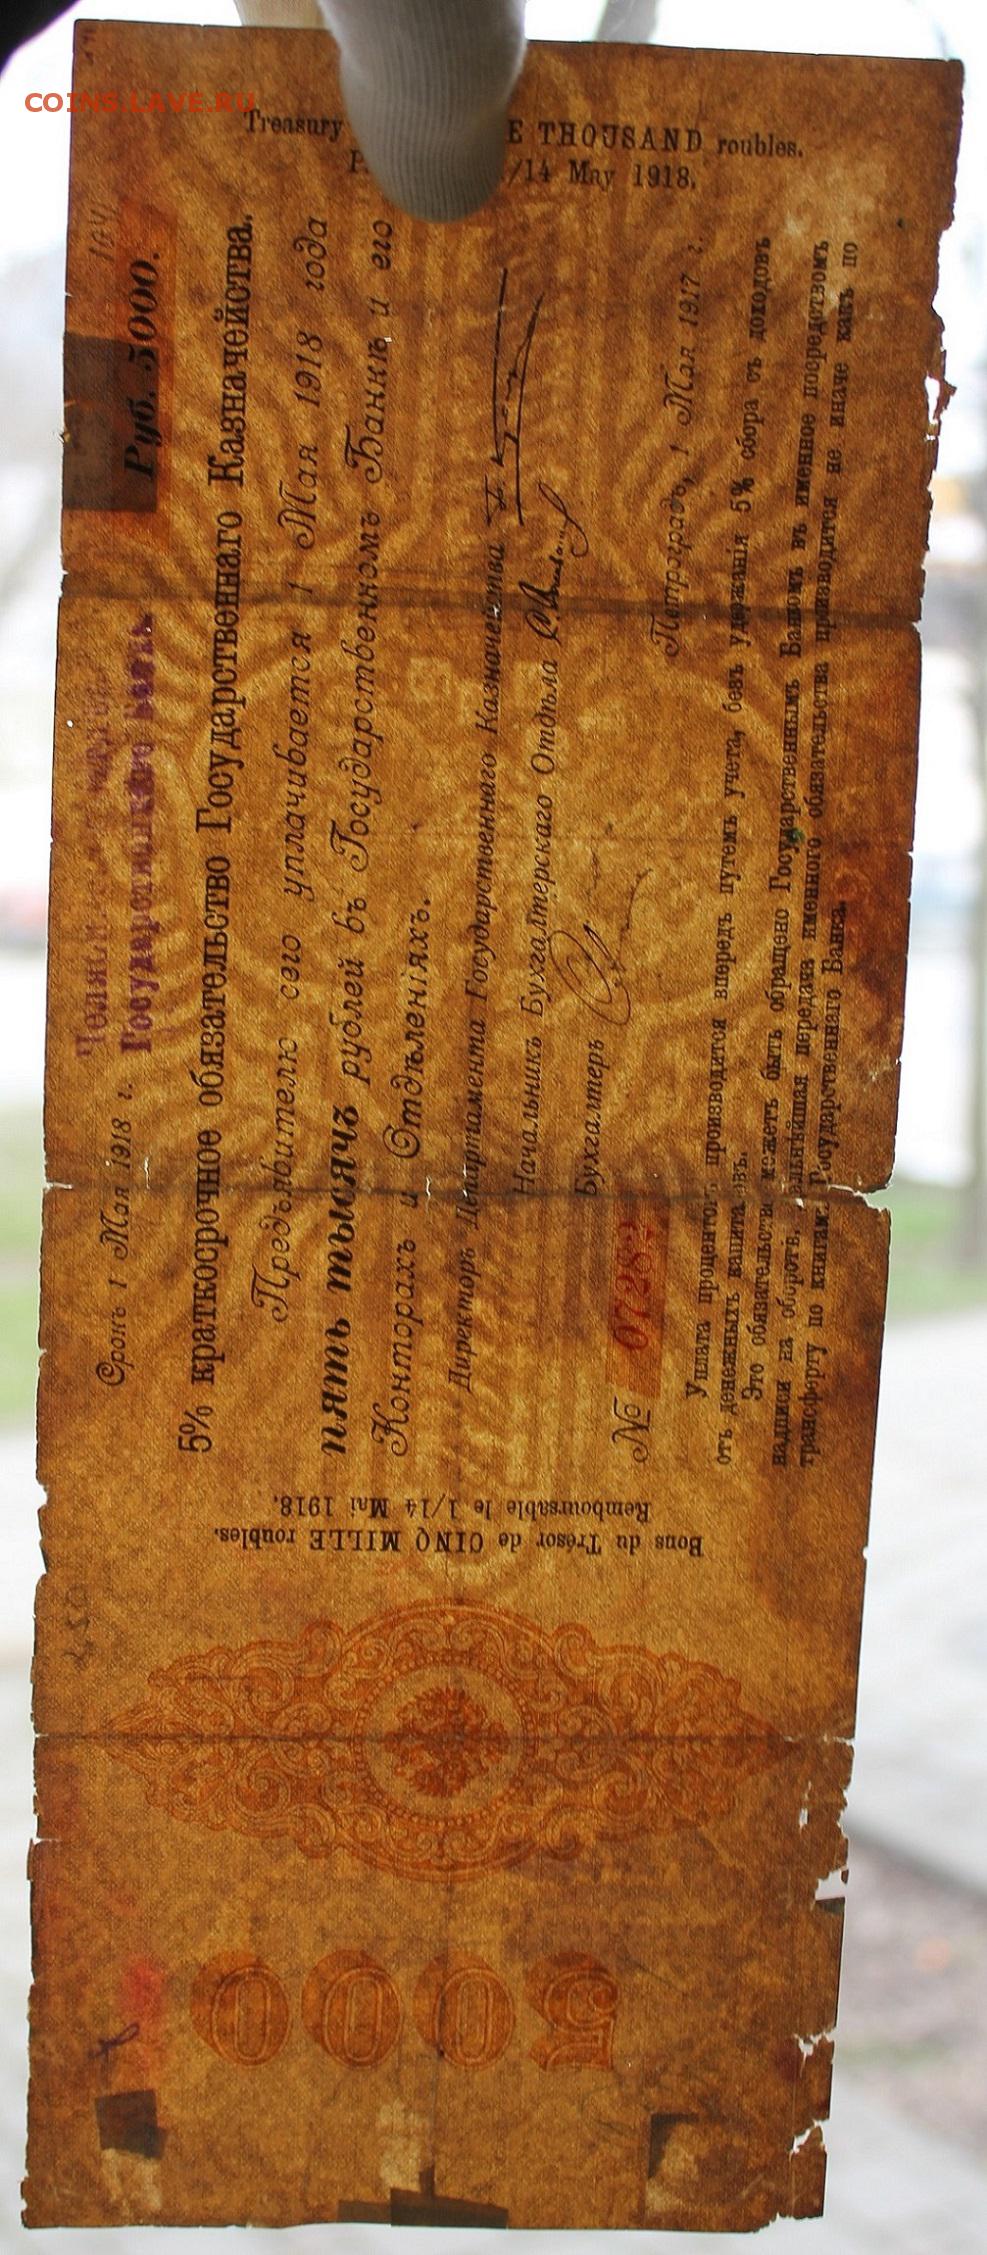 COINS.LAVE.RU
Treasury E THOUSAND roubles.
/14 May 1918.
Срокъ 1 Мая 1918 г.
Государственнаго Банка
Руб. 5000.
5% краткосрочное обязательство Государственнаго Казначейства.
Предъявителю сего уплачивается 1 Мая 1918 года
пять тысячъ рублей въ Государственномъ Банкѣ и его
Конторахъ и Отдѣленіяхъ.
Директоръ Департамента Государственнаго Казначейства
Начальникъ Бухгалтерскаго Отдѣла
Бухгалтеръ
№ 07282
Петроградъ, 1 Мая 1917 г.
Уплата процентовъ производится впередъ путемъ учета, безъ удержанія 5% сбора съ доходовъ
отъ денежныхъ капиталовъ.
Это обязательство можетъ быть обращено Государственнымъ Банкомъ въ именное посредствомъ
надписи на оборотѣ. Дальнѣйшая передача именного обязательства производится не иначе какъ по
трансферту по книгамъ Государственнаго Банка.
Bons du Trésor de CINQ MILLE roubles.
Remboursable le 1/14 Mai 1918.
250
5000